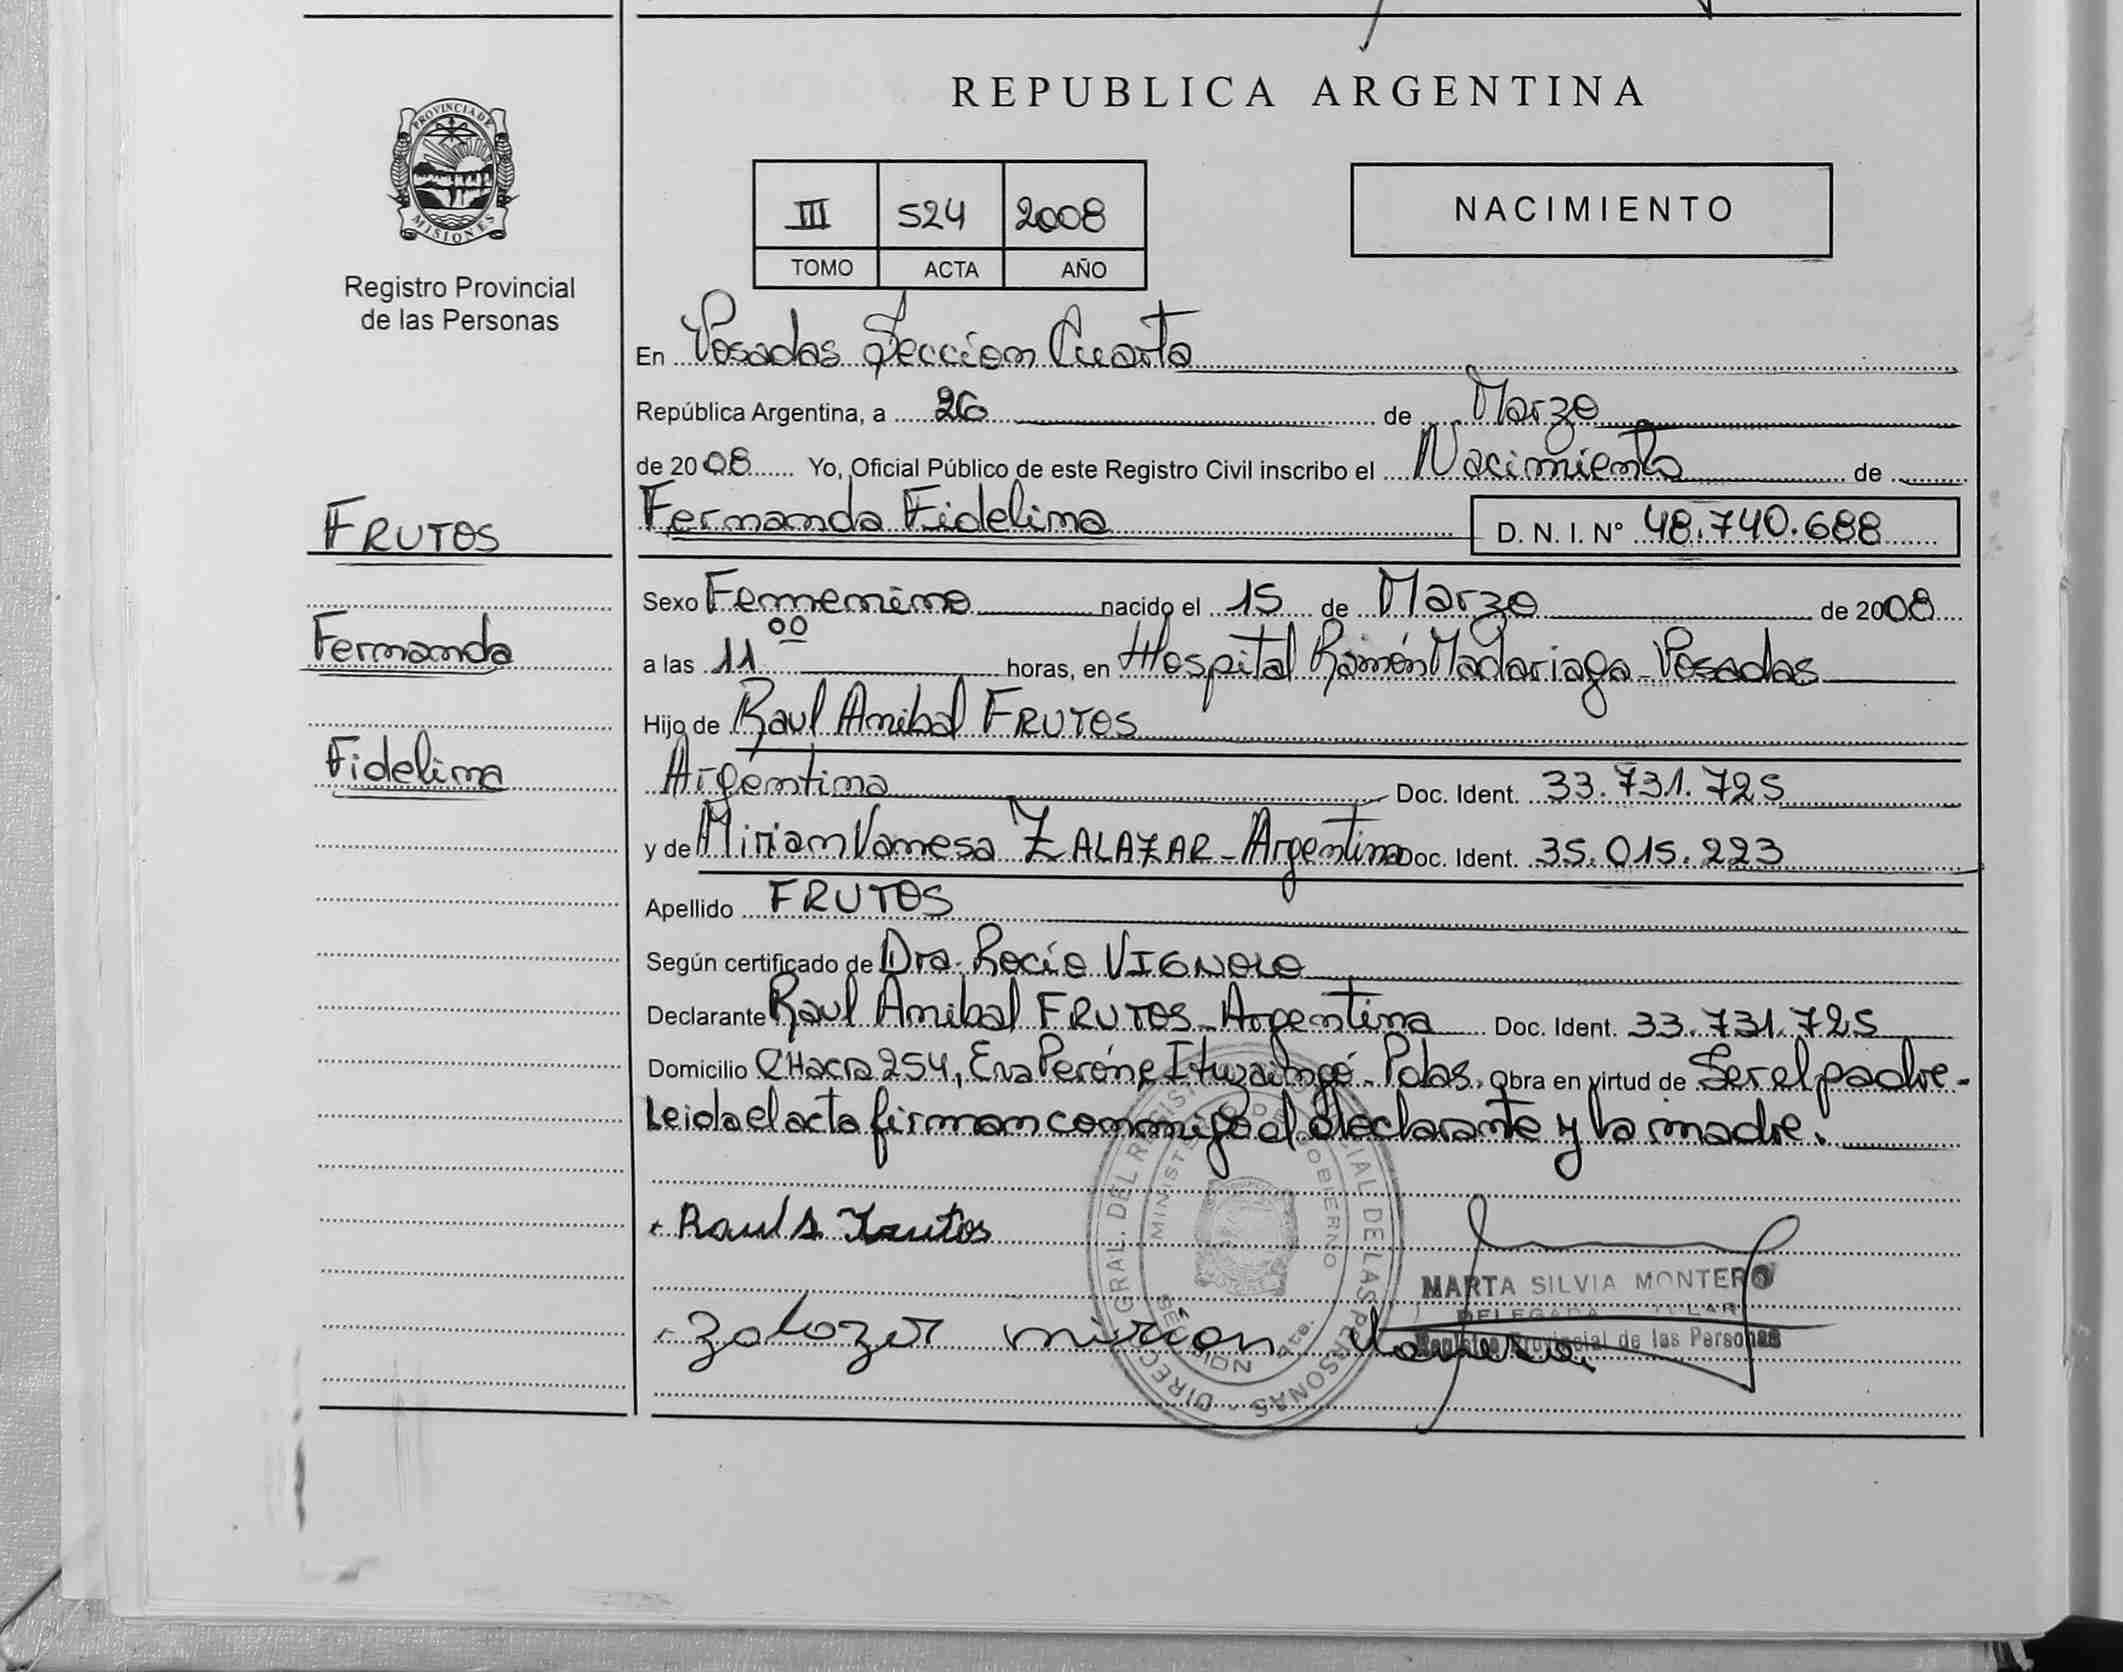 REPUBLICA ARGENTINA
PROVINCIA DE
MISIONES
Registro Provincial
de las Personas
III 524 2008
TOMO ACTA AÑO
NACIMIENTO
En Posadas Seccion Cuarta
República Argentina, a 26 de Marzo
de 2008 Yo, Oficial Público de este Registro Civil inscribo el Nacimiento de
Fernanda Fidelina D. N. I. Nº 48.740.688
FRUTOS
Fernanda
Fidelina
Sexo Femenino nacido el 15 de Marzo de 2008
a las 11 00 horas, en Hospital Ramón Madariaga - Posadas
Hijo de Raul Anibal FRUTOS
Argentina Doc. Ident. 33.731.725
y de Miriam Vanesa ZALAZAR - Argentina Doc. Ident. 35.015.223
Apellido FRUTOS
Según certificado de Dra. Rocío VIGNOLO
Declarante Raul Anibal FRUTOS - Argentina Doc. Ident. 33.731.725
Domicilio CHacra 254, Eva Perón e Ituzaingó - Pdas. Obra en virtud de Ser el padre -
Leida el acta firman conmigo el declarante y la madre.
Raul A. Frutos
MARTA SILVIA MONTERO
DELEGADA TITULAR
Registro Provincial de las Personas
Zalazar miriam Vanesa